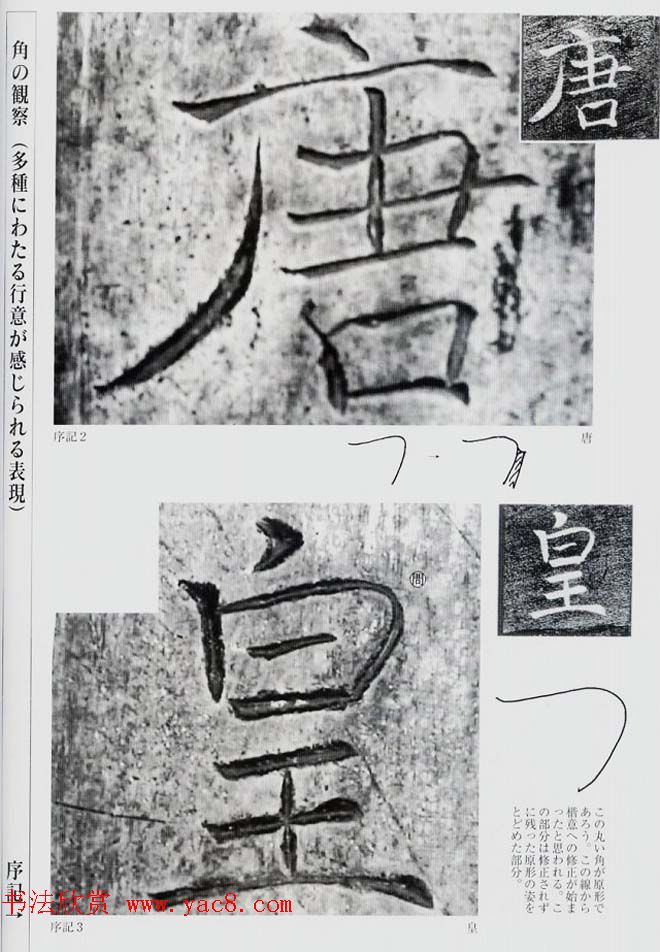 角の観察（多種にわたる行意が感じられる表現）
序記、
唐
唐
序記2
唐
皇
㊞
皇
この丸い角が原形で
あろう。この線から
楷意への修正が始ま
ったと思われる。こ
の部分は修正されず
に残った原形の姿を
とどめた部分。
序記3
皇
书法欣赏 www.yac8.com